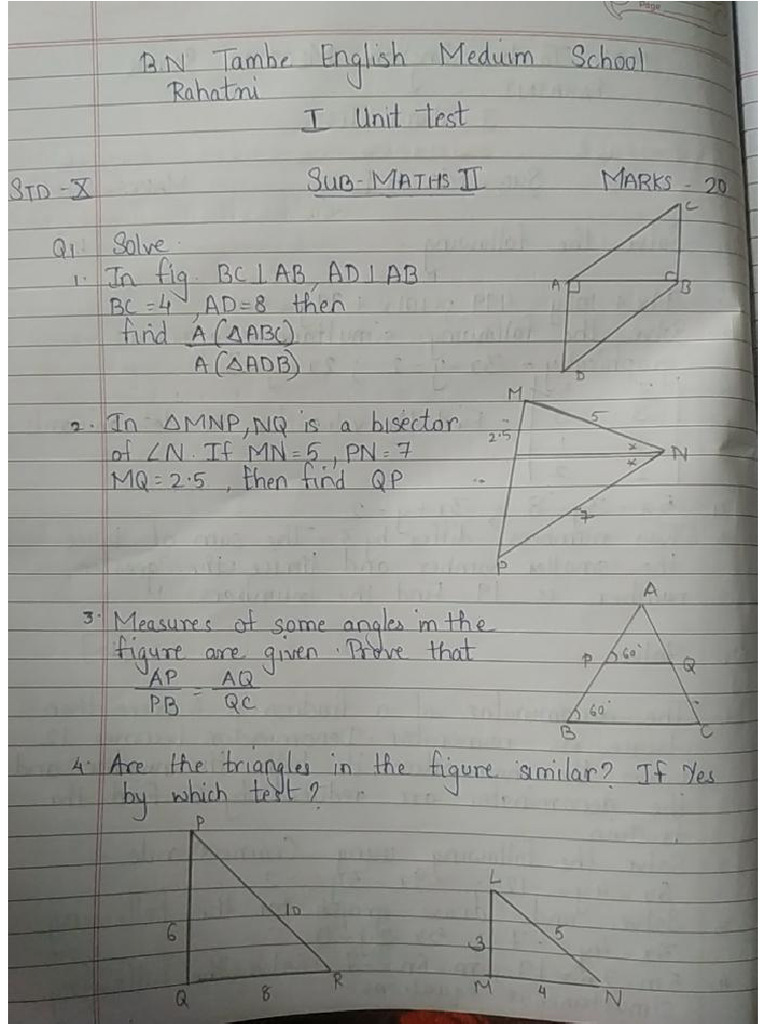 Page
BN Tambe English Meduim School
Rahatni
I Unit test
STD - X SUB- MATHS II MARKS - 20
Q1. Solve.
1. In fig BC⊥AB, AD⊥AB
BC = 4, AD=8 then
find A(△ABC)
A(△ADB)
C
A
B
D
2. In △MNP, NQ is a bisector
of ∠N. If MN=5, PN=7
MQ=2.5, then find QP
M
5
2.5
x
x
N
7
P
3. Measures of some angles in the
figure are given. Prove that
AP = AQ
PB QC
A
P 60° Q
60°
B C
4. Are the triangles in the figure similar? If Yes
by which test?
P
6 10
Q 8 R
L
3 5
M 4 N